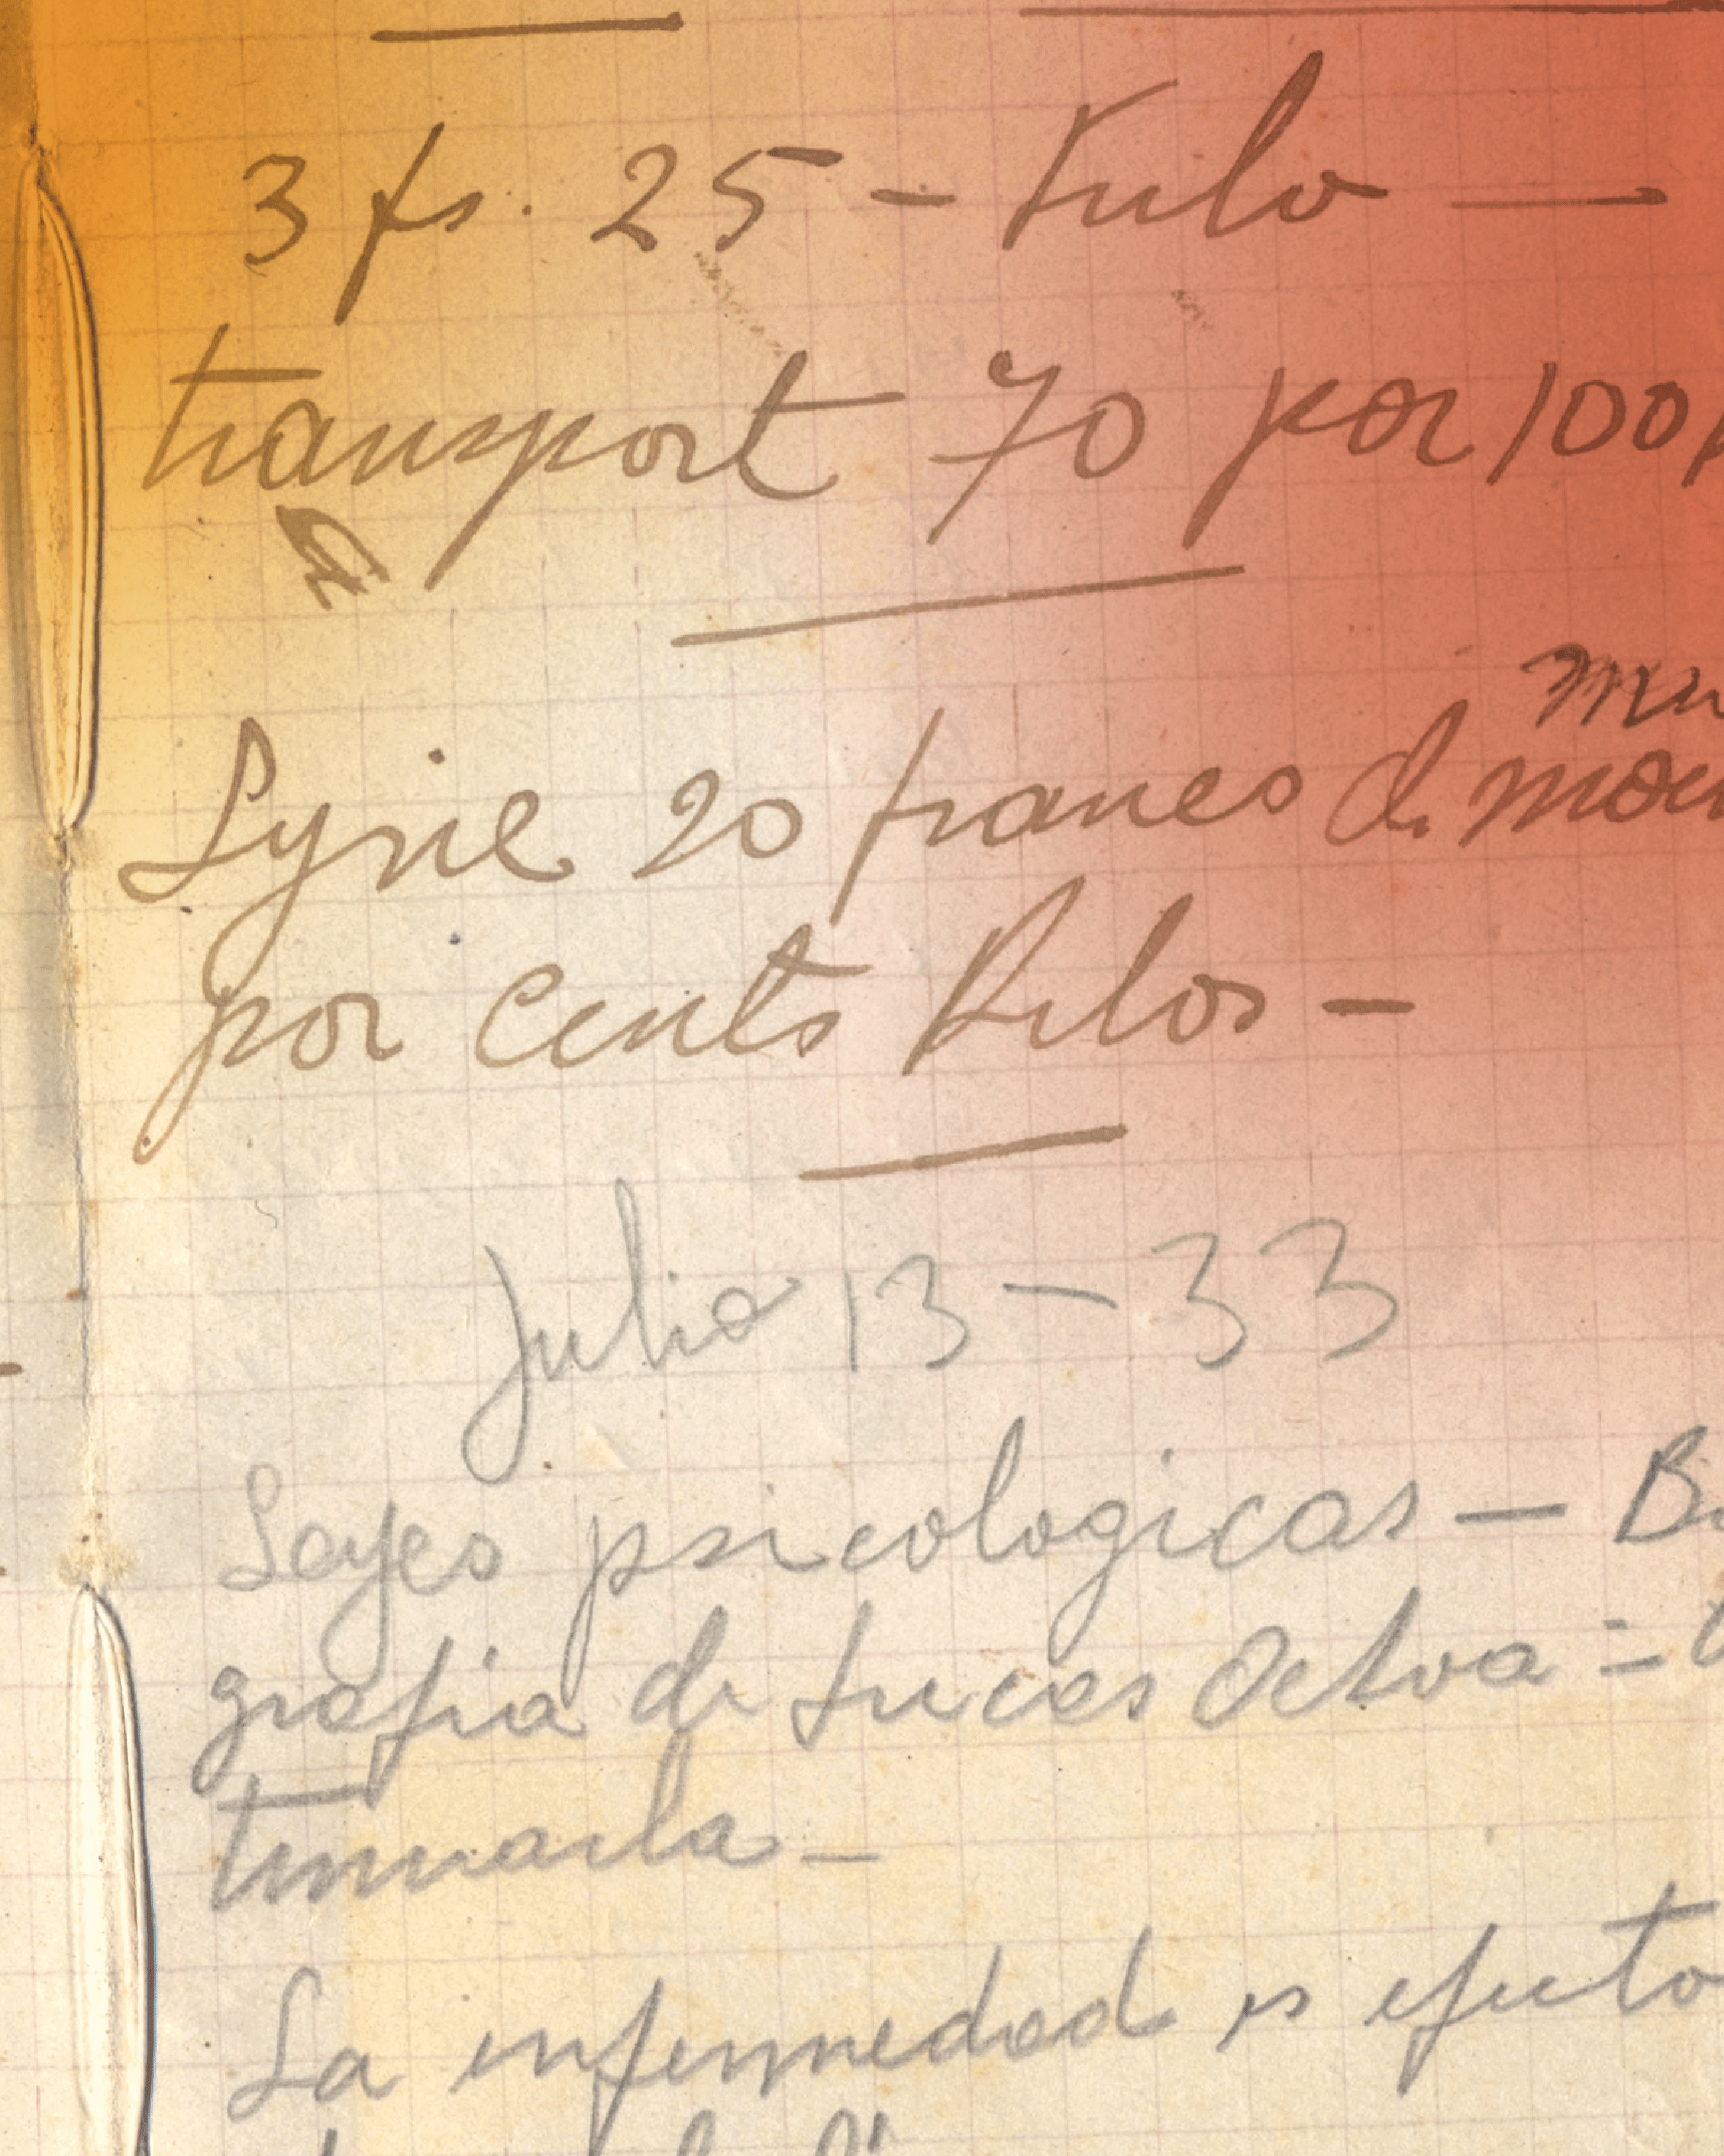 3 fs. 25 - Kilo —
transport 70 por 100
Syrie 20 francs d.
por cents Kilos -
Julio 13 - 33
Leyes psicologicas — B
grafia de Lucas Ochoa =
tinuarla -
La enfermedad es efecto